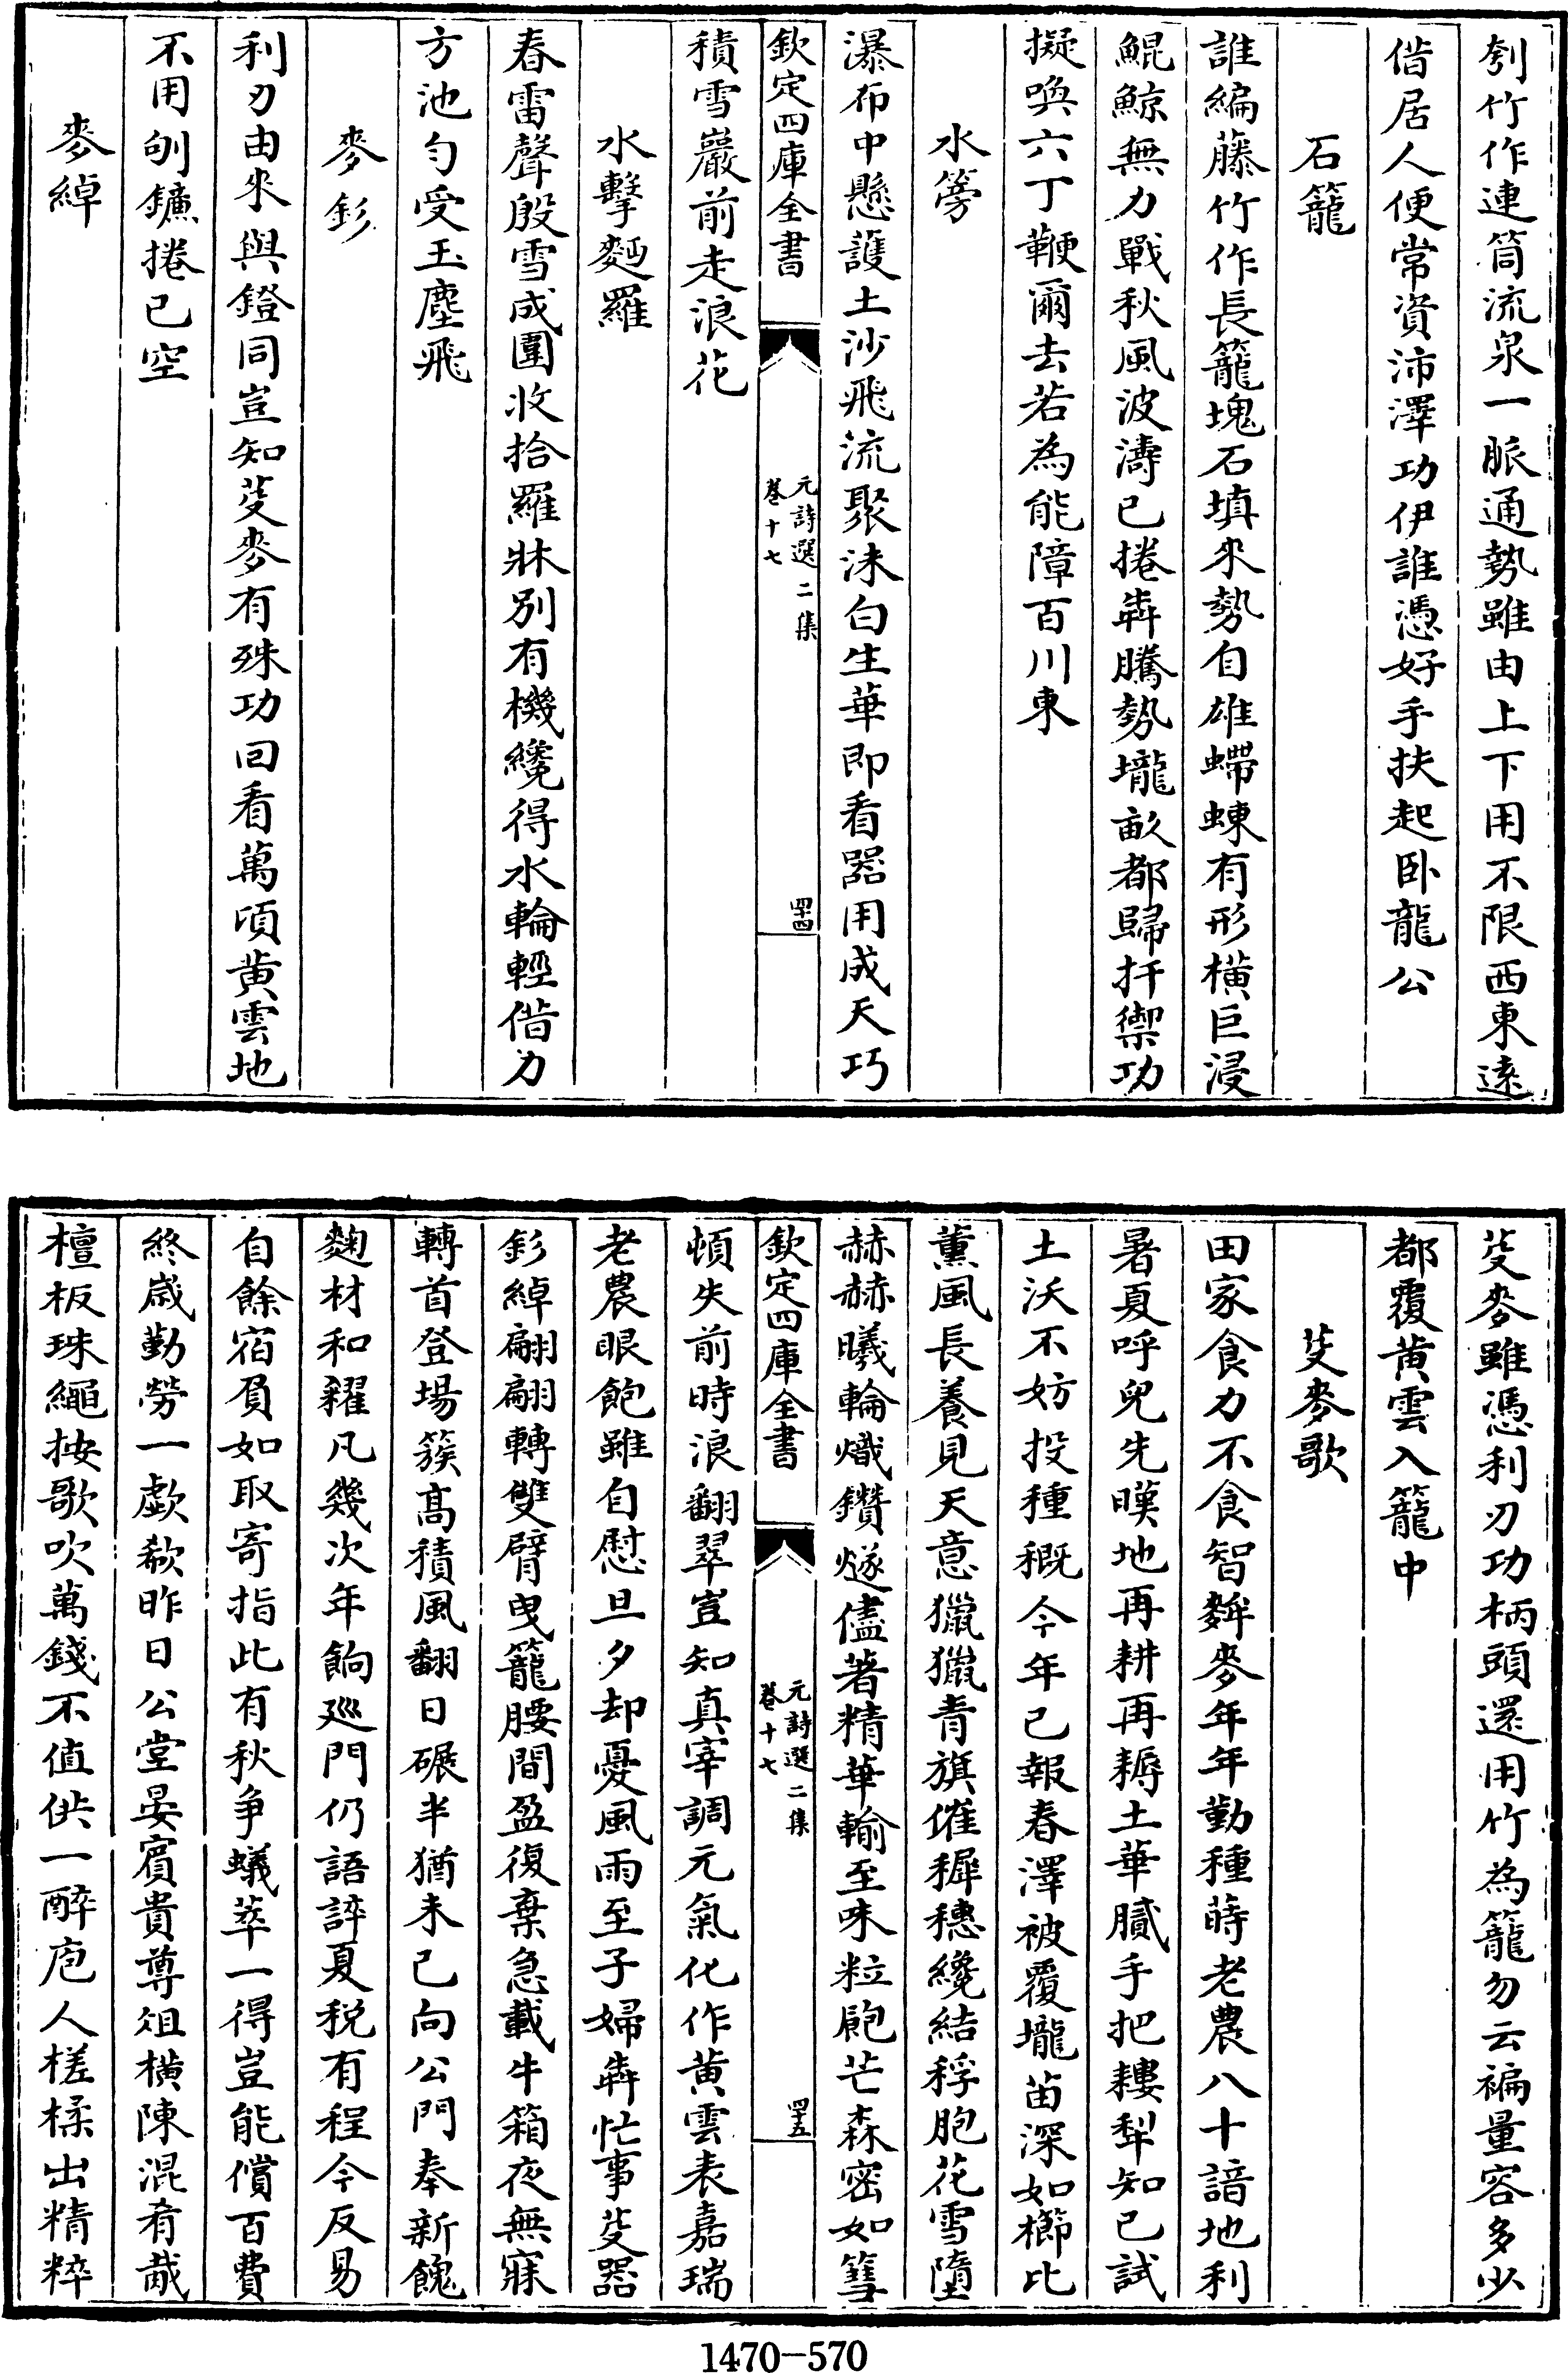 刳竹作連筒流泉一脈通勢雖由上下用不限西東遠
借居人便常資沛澤功伊誰憑好手扶起卧龍公
石籠
誰編藤竹作長籠塊石填來勢自雄螮蝀有形横巨浸
鯤鯨無力戰秋風波濤已捲犇騰勢壠畝都歸扞禦功
擬喚六丁鞭爾去若為能障百川東
水篣
瀑布中懸護土沙飛流聚沬白生華即看器用成天巧
欽定四庫全書
元詩選二集
卷十七
四十四
積雪巖前走浪花
水擊麪羅
春雷聲殷雪成圍收拾羅牀别有機纔得水輪輕借力
方池勻受玉塵飛
麥釤
利刃由來與鐙同豈知芟麥有殊功回看萬頃黄雲地
不用刎鐮捲已空
麥綽
芟麥雖憑利刃功柄頭還用竹為籠勿云褊量容多少
都覆黄雲入籠中
芟麥歌
田家食力不食智麰麥年年勤種蒔老農八十諳地利
暑夏呼兒先暵地再耕再耨土華膩手把耬犁知已試
土沃不妨投種概今年已報春澤被覆壠苗深如櫛比
薰風長養見天意獵獵青旗催穉穗纔結稃胞花雪墮
赫赫曦輪熾鑽燧儘著精華輸至味粒飽芒森密如篲
欽定四庫全書
元詩選二集
卷十七
四十五
頓失前時浪翻翠豈知真宰調元氣化作黄雲表嘉瑞
老農眼飽雖自慰旦夕却憂風雨至子婦犇忙事芟器
釤綽翩翩轉雙臂曳籠腰間盈復棄急載牛箱夜無寐
轉首登場簇髙積風翻日碾半猶未已向公門奉新餽
麴材和糴凡幾次年餉廵門仍語誶夏税有程今反易
自餘宿負如取寄指此有秋争蟻萃一得豈能償百費
終歲勤勞一歔欷昨日公堂宴賓貴尊俎横陳混肴胾
檀板珠繩按歌吹萬錢不值供一醉庖人槎楺出精粹
1470-570